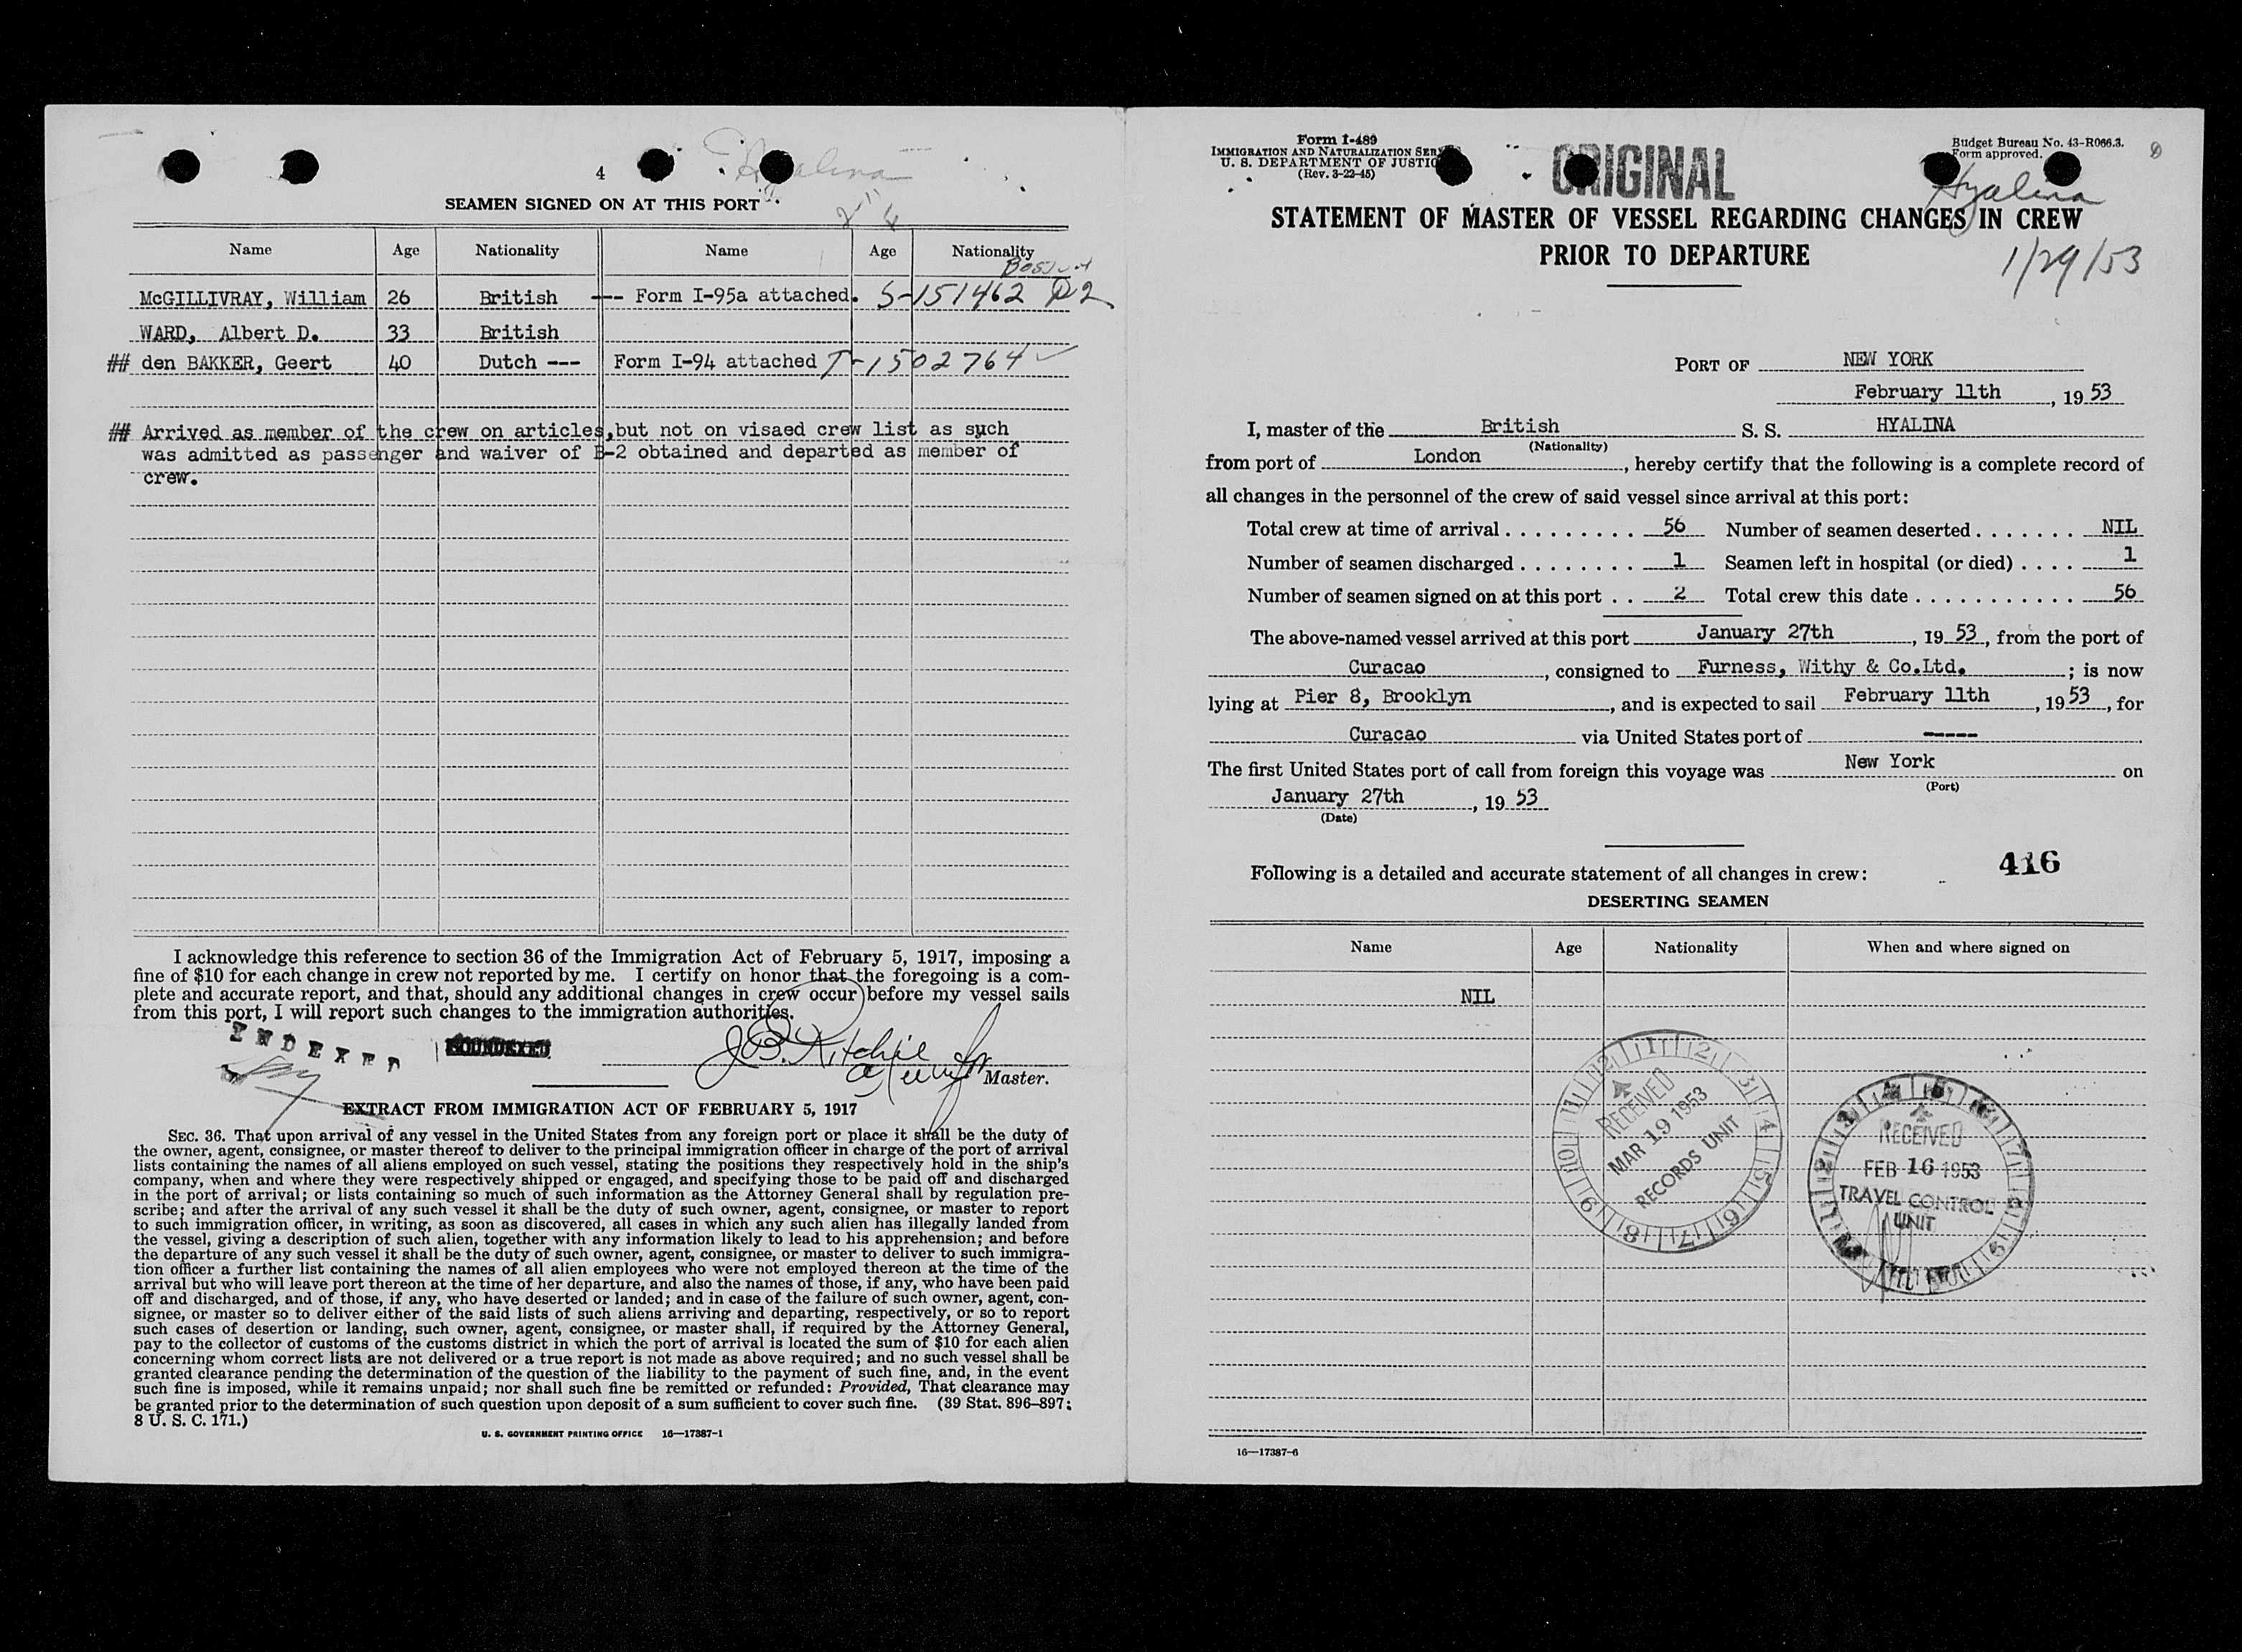 4
Hyalina
SEAMEN SIGNED ON AT THIS PORT
Name Age Nationality Name Age Nationality
Boston
McGILLIVRAY, William 26 British --- Form I-95a attached. S-151462 D2
WARD, Albert D. 33 British
## den BAKKER, Geert 40 Dutch --- Form I-94 attached T-1502764 ✓
## Arrived as member of the crew on articles, but not on visaed crew list as such
was admitted as passenger and waiver of B-2 obtained and departed as member of
crew.
I acknowledge this reference to section 36 of the Immigration Act of February 5, 1917, imposing a
fine of $10 for each change in crew not reported by me. I certify on honor that the foregoing is a com-
plete and accurate report, and that, should any additional changes in crew occur before my vessel sails
from this port, I will report such changes to the immigration authorities.
INDEXED
SOUNDEXED
J B. Ritchie
Master.
EXTRACT FROM IMMIGRATION ACT OF FEBRUARY 5, 1917
SEC. 36. That upon arrival of any vessel in the United States from any foreign port or place it shall be the duty of
the owner, agent, consignee, or master thereof to deliver to the principal immigration officer in charge of the port of arrival
lists containing the names of all aliens employed on such vessel, stating the positions they respectively hold in the ship's
company, when and where they were respectively shipped or engaged, and specifying those to be paid off and discharged
in the port of arrival; or lists containing so much of such information as the Attorney General shall by regulation pre-
scribe; and after the arrival of any such vessel it shall be the duty of such owner, agent, consignee, or master to report
to such immigration officer, in writing, as soon as discovered, all cases in which any such alien has illegally landed from
the vessel, giving a description of such alien, together with any information likely to lead to his apprehension; and before
the departure of any such vessel it shall be the duty of such owner, agent, consignee, or master to deliver to such immigra-
tion officer a further list containing the names of all alien employees who were not employed thereon at the time of the
arrival but who will leave port thereon at the time of her departure, and also the names of those, if any, who have been paid
off and discharged, and of those, if any, who have deserted or landed; and in case of the failure of such owner, agent, con-
signee, or master so to deliver either of the said lists of such aliens arriving and departing, respectively, or so to report
such cases of desertion or landing, such owner, agent, consignee, or master shall, if required by the Attorney General,
pay to the collector of customs of the customs district in which the port of arrival is located the sum of $10 for each alien
concerning whom correct lists are not delivered or a true report is not made as above required; and no such vessel shall be
granted clearance pending the determination of the question of the liability to the payment of such fine, and, in the event
such fine is imposed, while it remains unpaid; nor shall such fine be remitted or refunded: Provided, That clearance may
be granted prior to the determination of such question upon deposit of a sum sufficient to cover such fine. (39 Stat. 896–897;
8 U. S. C. 171.)
U. S. GOVERNMENT PRINTING OFFICE 16—17387-1
Form I-489
IMMIGRATION AND NATURALIZATION SER
U. S. DEPARTMENT OF JUSTIC
(Rev. 3-22-45)
ORIGINAL
Budget Bureau No. 43-R066.3.
Form approved.
Hyalina
STATEMENT OF MASTER OF VESSEL REGARDING CHANGES IN CREW
PRIOR TO DEPARTURE
1/29/53
PORT OF NEW YORK
February 11th, 19 53
I, master of the British S. S. HYALINA
(Nationality)
from port of London, hereby certify that the following is a complete record of
all changes in the personnel of the crew of said vessel since arrival at this port:
Total crew at time of arrival . . . . . . . . . . 56 Number of seamen deserted . . . . . . . NIL
Number of seamen discharged . . . . . . . . . 1 Seamen left in hospital (or died) . . . . 1
Number of seamen signed on at this port . . 2 Total crew this date . . . . . . . . . . . . 56
The above-named vessel arrived at this port January 27th, 19 53, from the port of
Curacao, consigned to Furness, Withy & Co.Ltd. ; is now
lying at Pier 8, Brooklyn, and is expected to sail February 11th, 19 53, for
Curacao via United States port of -----
The first United States port of call from foreign this voyage was New York on
(Port)
January 27th, 19 53
(Date)
416
Following is a detailed and accurate statement of all changes in crew:
DESERTING SEAMEN
Name Age Nationality When and where signed on
NIL
RECEIVED
MAR 19 1953
RECORDS UNIT
RECEIVED
FEB 16 1953
TRAVEL CONTROL
UNIT
16—17387-6